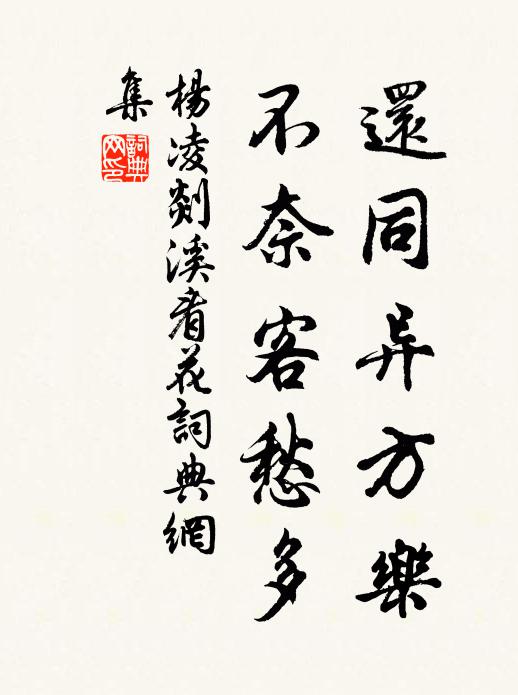 還同异方樂
不奈客愁多
楊凌剡溪看花詞典網
集
詞典
网印